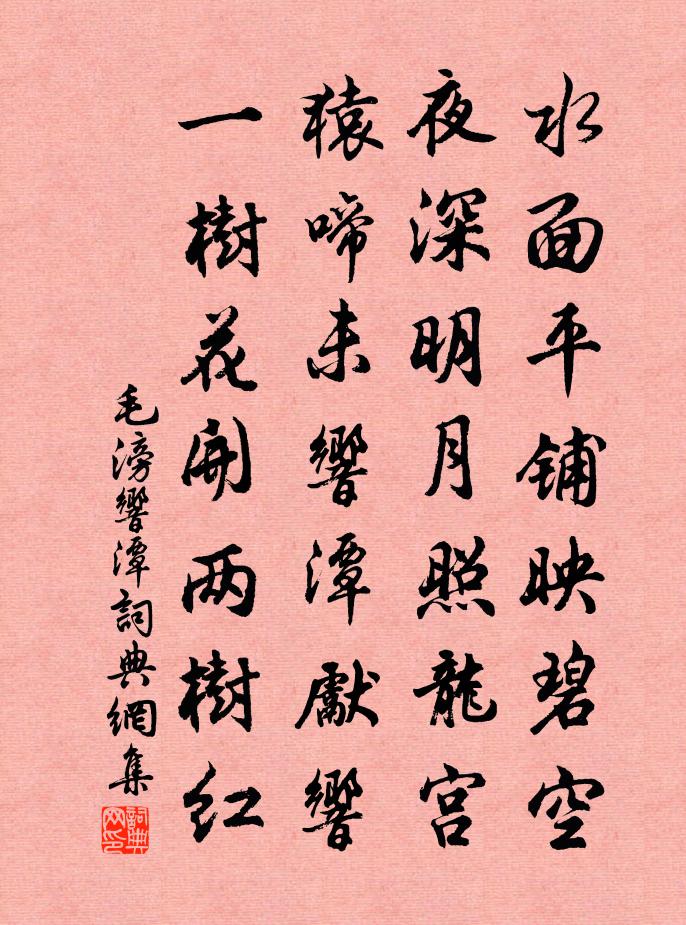 水面平铺映碧空
夜深明月照龍宫
猿啼未響潭獻響
一樹花開两樹红
毛滂響潭詞典網集
詞典网印